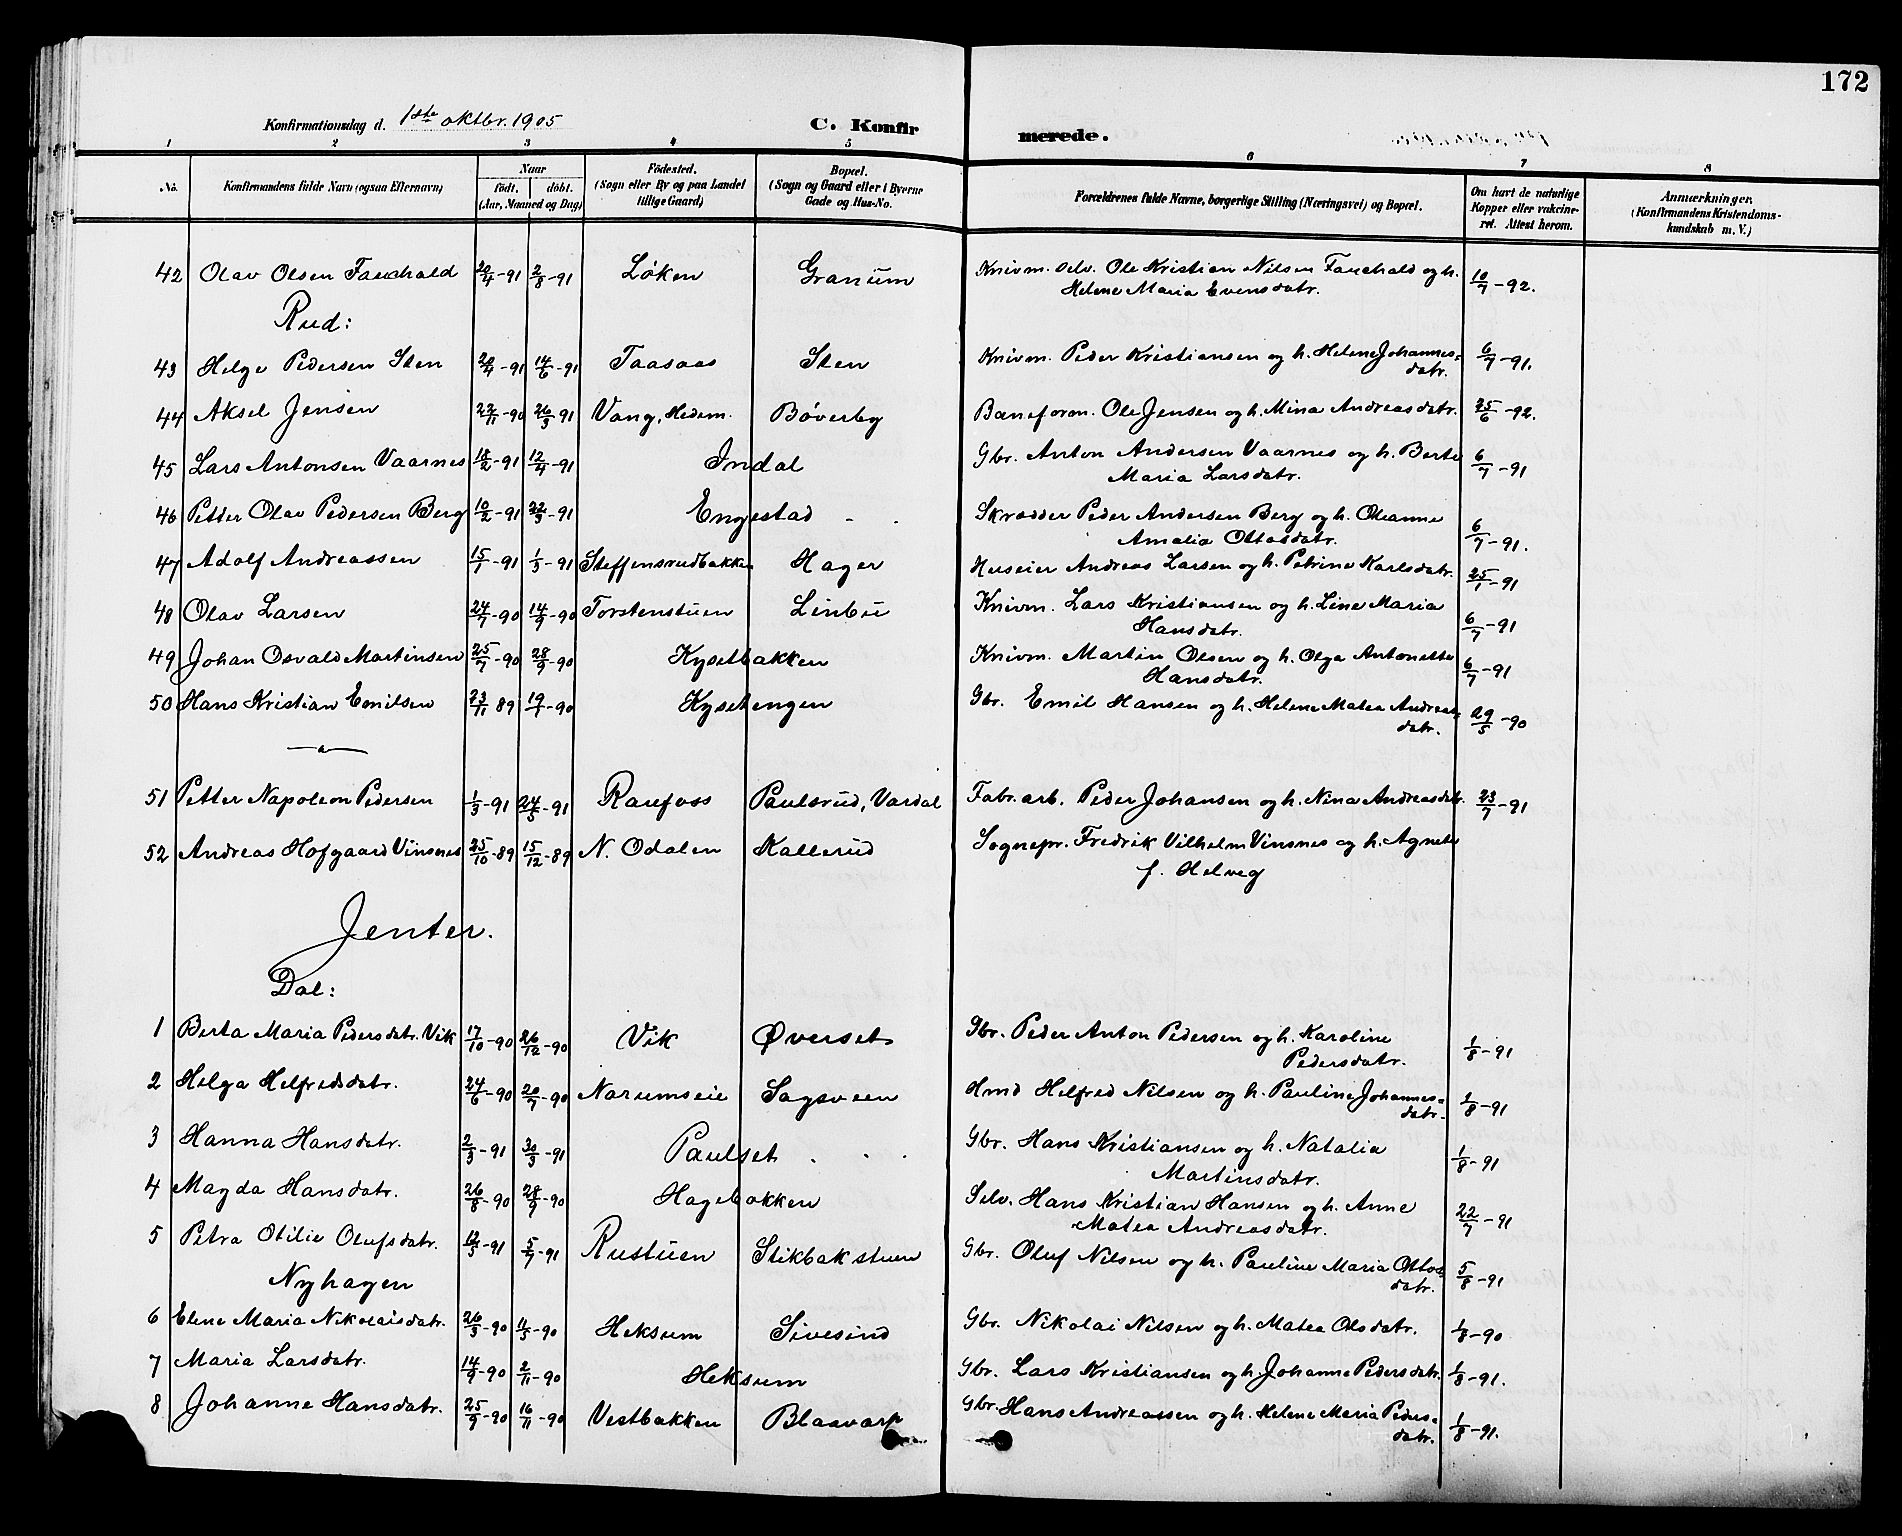 172
Konfirmationsdag d. 1ste oktbr. 1905
C. Konfirmerede.
1 2 3 4 5 6 7 8
No. Konfirmandens fulde Navn (ogsaa Efternavn) Naar født. døbt. (Aar, Maaned og Dag) Fødested. (Sogn eller By og paa Landet tillige Gaard) Bopæl. (Sogn og Gaard eller i Byerne Gade og Hus-No. Forældrenes fulde Navne, borgerlige Stilling (Næringsvei) og Bopæl. Om havt de naturlige Kopper eller vakcineret. Attest herom. Anmærkninger. (Konfirmandens Kristendomskundskab m. V.)
42 Olav Olsen Fauchald 29/4-91 2/8-91 Løken Granum Knivm. Selv. Ole Kristian Nilsen Fauchald og h. Helene Maria Evensdatr. 10/7-92.
Rud:
43 Helge Pedersen Sten 14/6-91 Taasaas Sten Knivm. Peder Kristiansen og h. Helene Johannesdatr. 6/7-91.
44 Aksel Jensen 22/11-90 26/3-91 Vang, Hedem. Bøverby Baneform. Ole Jensen og h. Mina Andreasdatr. 25/6-92.
45 Lars Antonsen Vaarnes 18/2-91 12/4-91 Indal Gbr. Anton Andersen Vaarnes og h. Berte Maria Larsdatr. 6/7-91
46 Petter Olav Pedersen Berg 10/2-91 22/3-91 Engestad Skrædder Peder Andersen Berg og h. Oleanne Amalia Ottosdatr. 6/7-91.
47 Adolf Andreassen 15/1-91 1/3-91 Steffensrudbakken Hager Huseier Andreas Larsen og h. Petrine Karlsdatr. 25/1-91
48 Olav Larsen 24/7-90 14/9-90 Torstenstuen Linbu Knivm. Lars Kristiansen og h. Line Maria Hansdatr. 6/7-91
49 Johan Osvald Martinsen 25/7-90 28/9-90 Kysetbakken Knivm. Martin Olsen og h. Olga Antonette Hansdatr. 6/7-91
50 Hans Kristian Emilsen 23/11 89 19/1-90 Kysetengen Gbr. Emil Hansen og h. Helene Matea Andreasdatr. 29/5-90
51 Petter Napoleon Pedersen 1/3-91 24/5-91 Raufoss Paulsrud, Vardal Fabr. arb. Peder Johansen og h. Nina Andreasdtr. 23/7-91
52 Andreas Hofgaard Vinsnes 25/10-89 15/12-89 N. Odalen Kallerud Sognepr. Fredrik Vilhelm Vinsnes og h. Agnete f. Helveg
Jenter.
Dal:
1 Berta Maria Pedersdatr. Vik 17/10-90 26/12-90 Vik Øverset Gbr. Peder Anton Pedersen og h. Karoline Pedersdatr. 1/8-91
2 Helga Helfredsdatr. 24/6-90 20/7-90 Narumseie Sagsveen Hmd Helfred Nilsen og h. Pauline Johannesdatr. 1/8-91
3 Hanna Hansdatr. 2/3-91 30/3-91 Paulset Gbr. Hans Kristiansen og h. Natalia Martinsdatr. 1/8-91
4 Magda Hansdatr. 26/8-90 28/9-90 Hagebakken Selv. Hans Kristian Hansen og h. Anne Matea Andreasdatr. 22/7-91
5 Petra Otilie Olufsdatr. 12/5-91 5/7-91 Rustuen Stikbakstuen Gbr. Oluf Nilsen og h. Pauline Maria Ottosdatr. 5/8-91
Nyhagen
6 Elene Maria Nikolaisdatr. 26/3-90 11/5-90 Heksum Sivesind Gbr. Nikolai Nilsen og h. Matea Olsdatr. 1/8-90
7 Maria Larsdatr. 14/9-90 2/11-90 Heksum Gbr. Lars Kristiansen og h. Johanne Pedersdatr. 1/8-91.
8 Johanne Hansdatr. 25/9-90 16/11-90 Vestbakken Blaavarp Gbr. Hans Andreassen og h. Helene Maria Pedersdatr. 1/8-91.